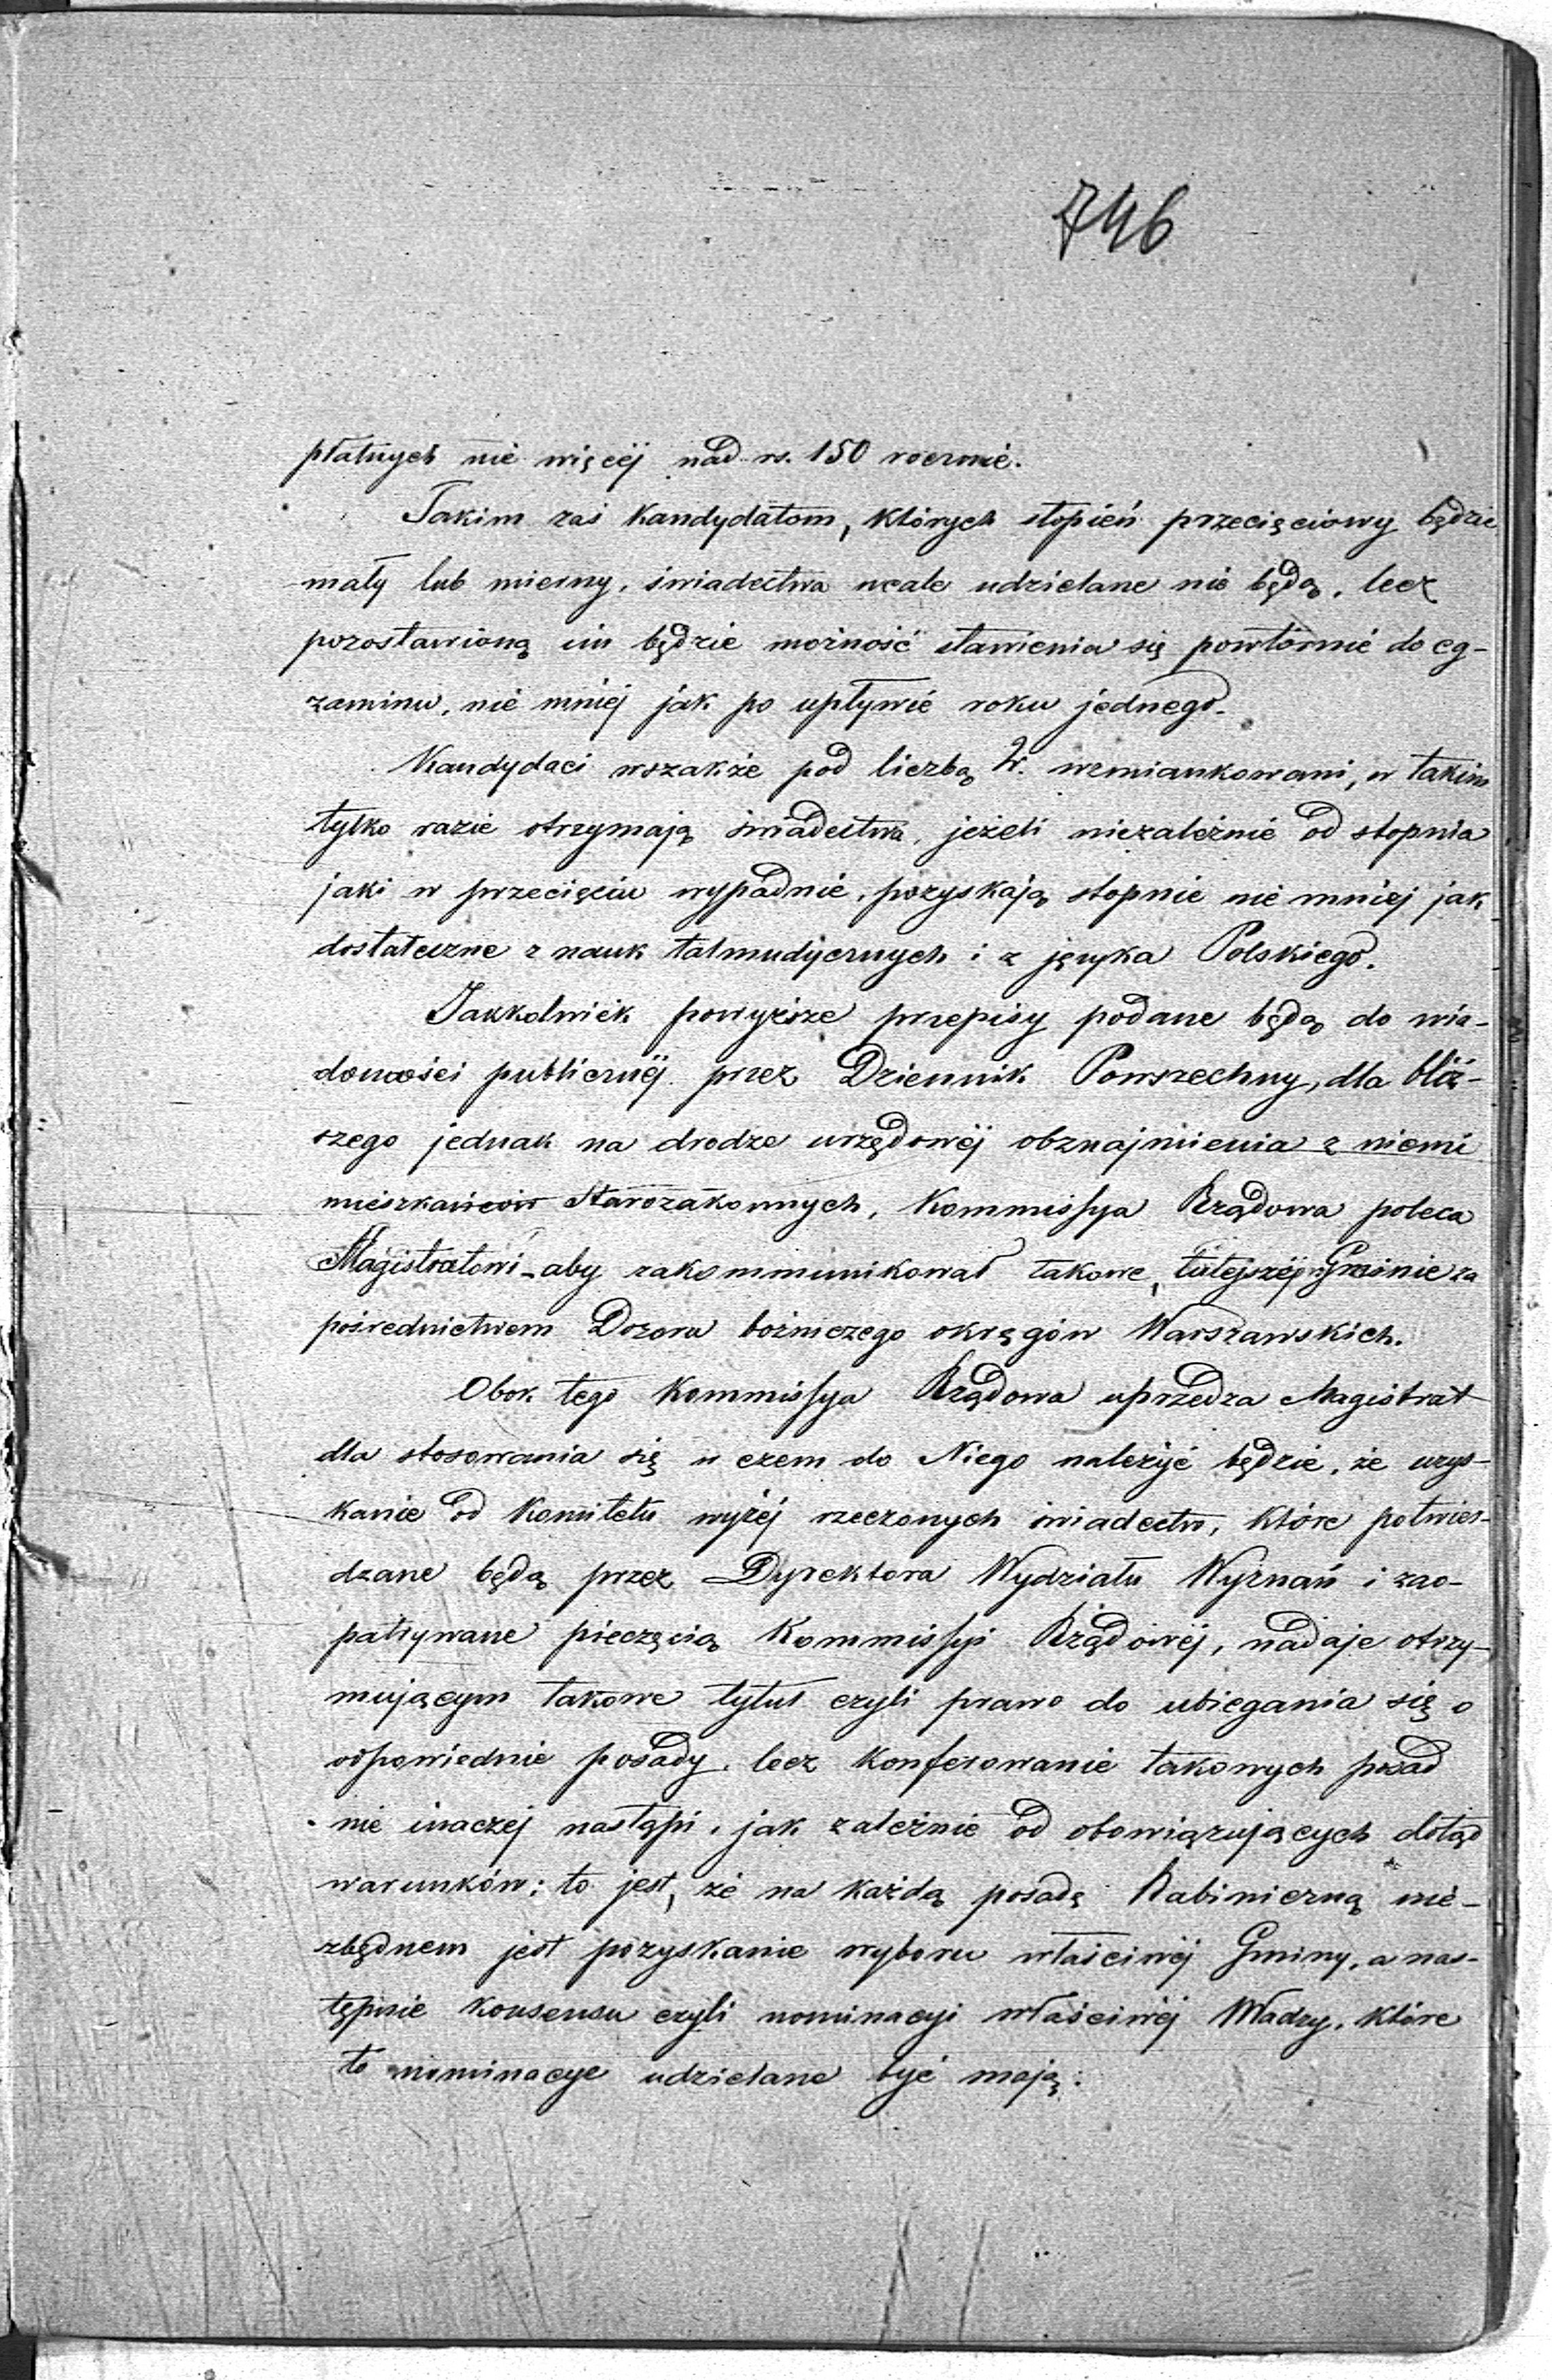 746
płatnych nie więcéj nad rs. 150 rocznie.
Takim zaś Kandydatom, których stopień przecięciowy będzie
mały lub mierny, świadectwa wcale udzielane nie będą, lecz
pozostawioną im będzie możność stawienia się powtórnie do eg-
zaminu, nie mniej jak po upływie roku jednego.
Kandydaci wszakże pod liczbą wzmiankowani, w takim
tylko razie otrzymają świadectwa, jeżeli niezależnie od stopnia
jaki w przecięciu wypadnie, pozyskają stopnie nie mniej jak
dostateczne z nauk talmudycznych i z języka Polskiego.
Jakkolwiek powyższe przepisy podane będą do wia-
domości publicznéj przez Dziennik Powszechny, dla bliż-
szego jednak na drodze urzędowéj obznajmienia z niemi
mieszkańców Starozakonnych, Kommissya Rządowa poleca
Magistratowi aby zakommunikował takowe, tutejszéj Gminie za
pośrednictwem Dozoru bożniczego okręgów Warszawskich.
Obok tego Kommissya Rządowa uprzedza Magistrat
dla stosowania się w czem do Niego należyć będzie, że uzys-
kanie od Komitetu wyżéj rzeczonych świadectw, które potwier-
dzane będą przez Dyrektora Wydziału Wyznań i zao-
patrywane pieczęcią Kommissyi Rządowéj, nadaje otrzy-
mującym takowe tytuł czyli prawo do ubiegania się o
odpowiednie posady, lecz konferowanie takowych posad
nie inaczéj nastąpi, jak zależnie od obowiązujących dotąd
warunków: to jest, że na każdą posadę Rabiniczną nie-
zbędnem jest pozyskanie wyboru właściwéj Gminy, a nas-
tępnie konsensu czyli nominacyi właściwéj Władzy, które
to nominacye udzielane być mają: